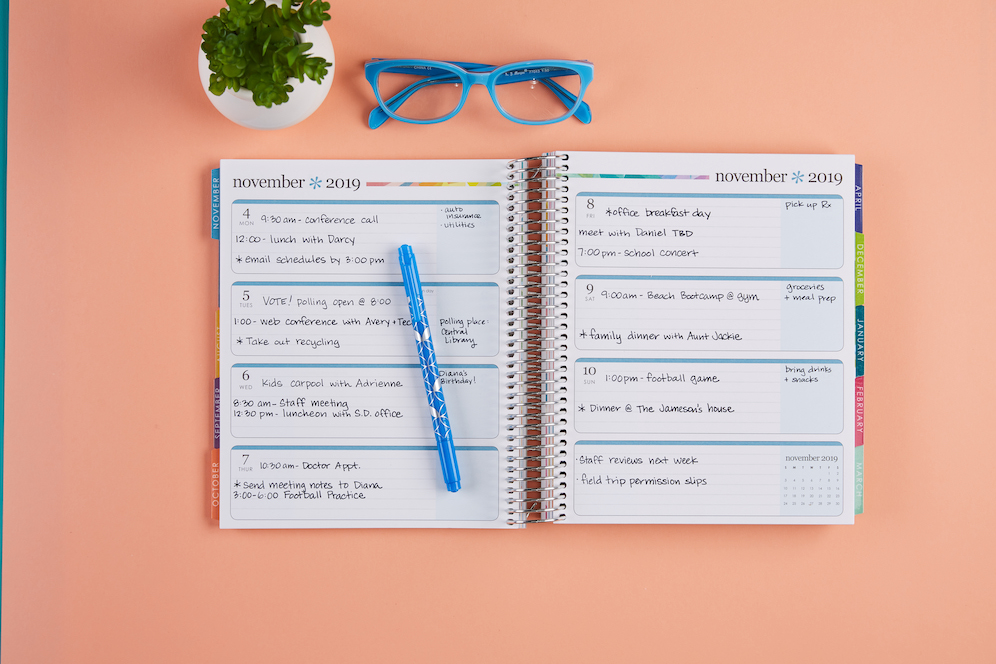 november * 2019
4
MON
9:30 am - conference call
12:00 - lunch with Darcy
* email schedules by 3:00 pm
· auto
insurance
· utilities
5
TUES
VOTE! polling open @ 8:00
1:00 - web conference with Avery + Tec
* Take out recycling
polling place:
Central
Library
6
WED
Kids carpool with Adrienne
8:30 am - Staff meeting
12:30 pm - luncheon with S.D. office
Diana's
Birthday!
7
THUR
10:30 am - Doctor Appt.
* Send meeting notes to Diana
3:00-6:00 Football Practice
november * 2019
8
FRI
* office breakfast day
meet with Daniel TBD
7:00 pm - school concert
pick up Rx
9
SAT
9:00 am - Beach Bootcamp @ gym
* family dinner with Aunt Jackie
groceries
+ meal prep
10
SUN
1:00 pm - football game
* Dinner @ The Jameson's house
bring drinks
+ snacks
· Staff reviews next week
· field trip permission slips
november 2019
NOVEMBER
AUGUST
SEPTEMBER
OCTOBER
APRIL
DECEMBER
JANUARY
FEBRUARY
MARCH